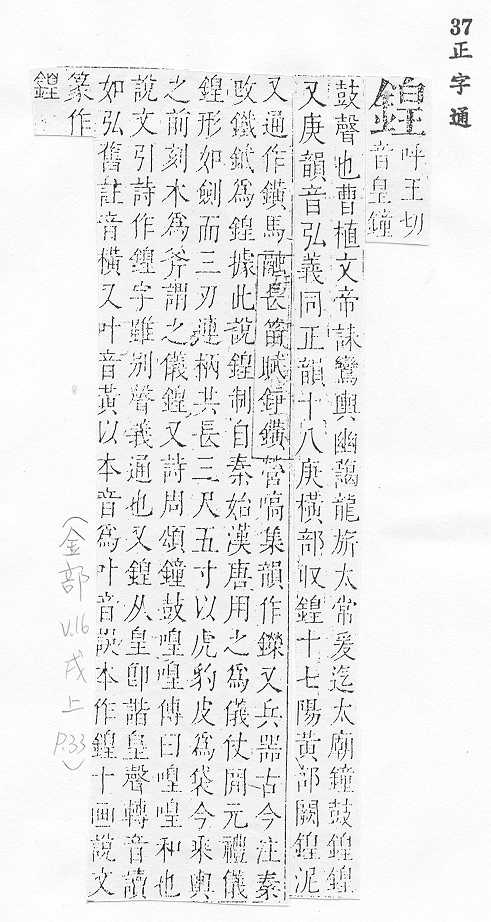 37正字通
鍠
呼王切
音皇鐘
鼓聲也曹植文帝誄鸞輿幽藹龍旂太常爰迄太廟鐘鼓鍠鍠
又庚韻音弘義同正韻十八庚橫部収鍠十七陽黃部闕鍠泥
又通作鐄馬融長笛賦錚鐄營嗃集韻作鑅又兵器古今注秦
改鐵鉞爲鍠據此說鍠制自秦始漢唐用之爲儀仗開元禮儀
鍠形如劍而三刃連柄共長三尺五寸以虎豹皮爲袋今乘輿
之前刻木爲斧謂之儀鍠又詩周頌鐘鼓喤喤傳曰喤喤和也
說文引詩作鍠字雖別聲義通也又鍠从皇卽諧皇聲轉音讀
如弘舊註音橫又叶音黃以本音爲叶音誤本作鍠十画說文
篆作
鍠
(金部 V.16 戌上 P.33)